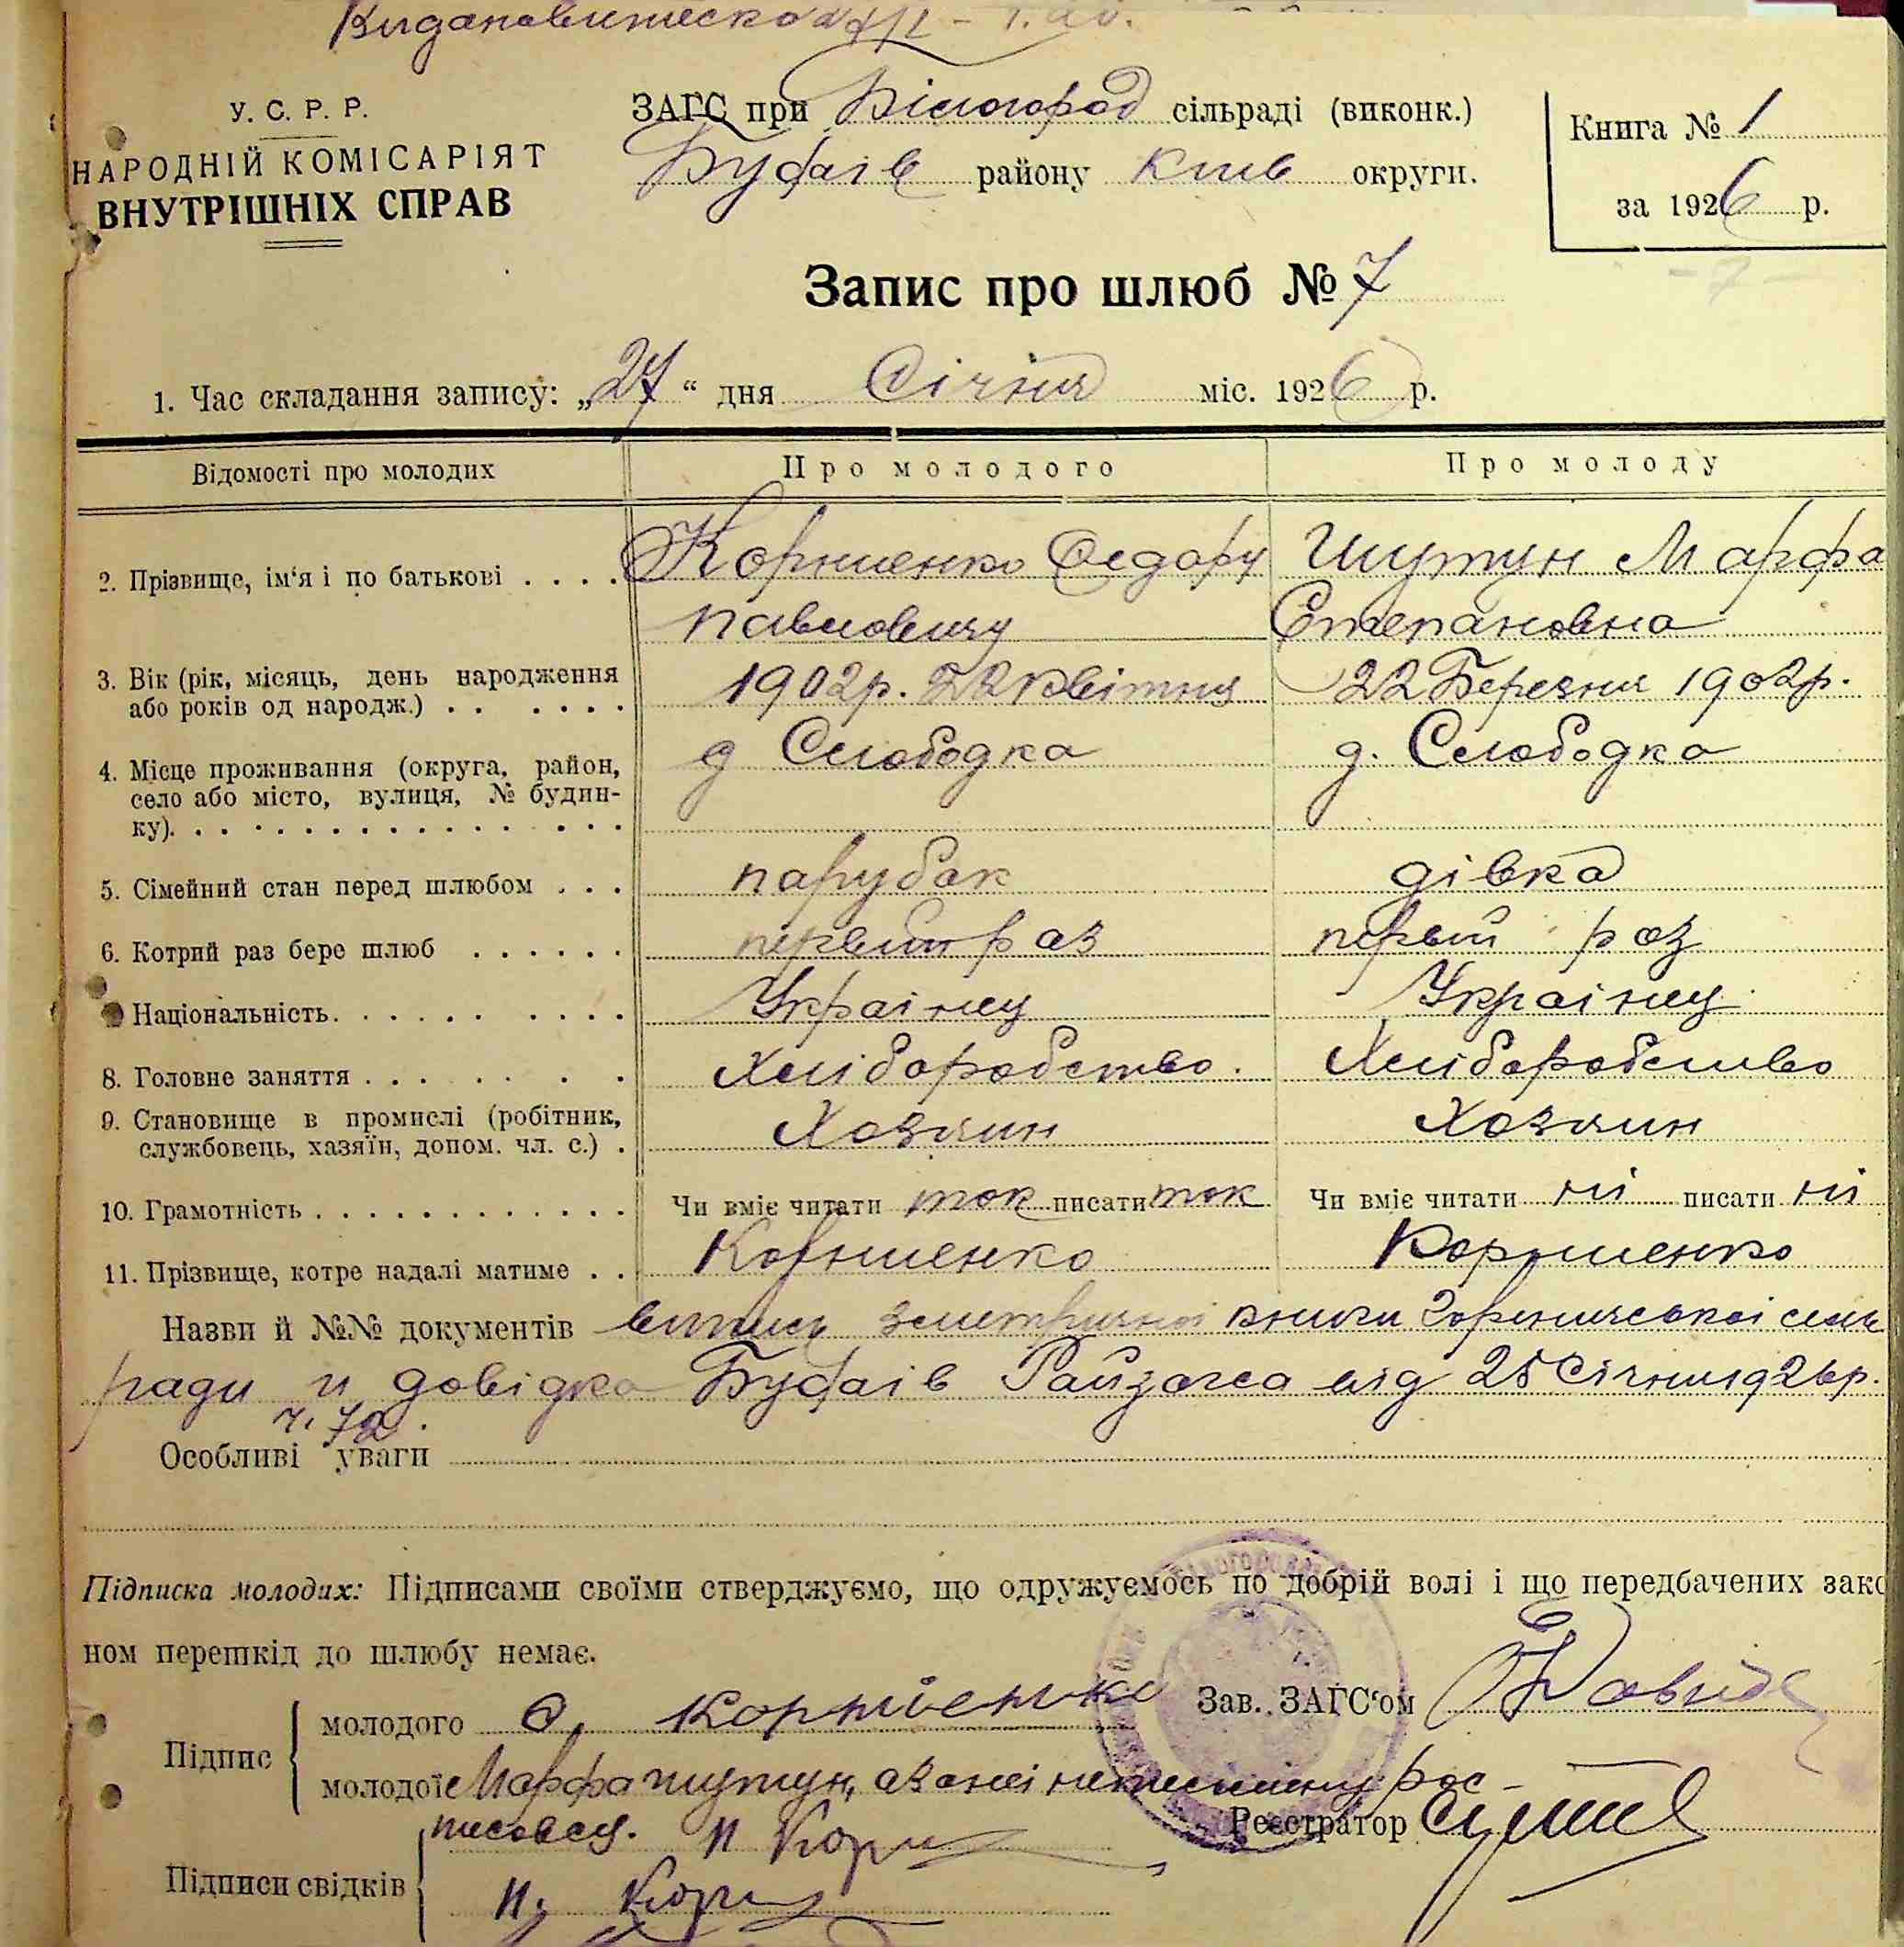 У. С. Р. Р.
НАРОДНІЙ КОМІСАРІЯТ
ВНУТРІШНІХ СПРАВ
ЗАГС при Білогород сільраді (виконк.)
Будаів району Київ округи.
Книга № 1
за 1926 р.
Запис про шлюб № 7
- 7 -
1. Час складання запису: „27“ дня Січня міс. 1926 р.
Відомості про молодих Про молодого Про молоду
2. Прізвище, ім'я і по батькові . . . . Корниенко Федору Шутун Марфа
Павловичу Степановна
3. Вік (рік, місяць, день народження
або років од народж.) . . . . . . 1902р. 22 Квітня 22 Березня 1902р.
4. Місце проживання (округа, район, д Слободка д. Слободка
село або місто, вулиця, № будин-
ку). . . . . . . . . . . . . . . .
5. Сімейний стан перед шлюбом . . . парубак дівка
6. Котрий раз бере шлюб . . . . . . первий раз первий раз
Національність. . . . . . . . . . Украінец Украінец
8. Головне заняття . . . . . . . Хліборобство. Хліборобство
9. Становище в промислі (робітник,
службовець, хазяїн, допом. чл. с.) . Хозяин Хозяин
10. Грамотність . . . . . . . . . . . . Чи вміє читати так писати так Чи вміє читати ні писати ні
11. Прізвище, котре надалі матиме . . Корниенко Корниенко
Назви й №№ документів випись книги Гореничськоі сель
ради и довідка Будаів Райзагса від 25 Січня 1926р.
ч. 72.
Особливі уваги
Підписка молодих: Підписами своїми стверджуємо, що одружуємось по добрій волі і що передбачених зако
ном перешкід до шлюбу немає.
Підпис
молодого Ф. Корнієнко
Зав. ЗАГС'ом
молодої Марфа Шутун, а за неі неписьменну рос-
писався. П Корн
Реєстратор
Підписи свідків
П. Корн